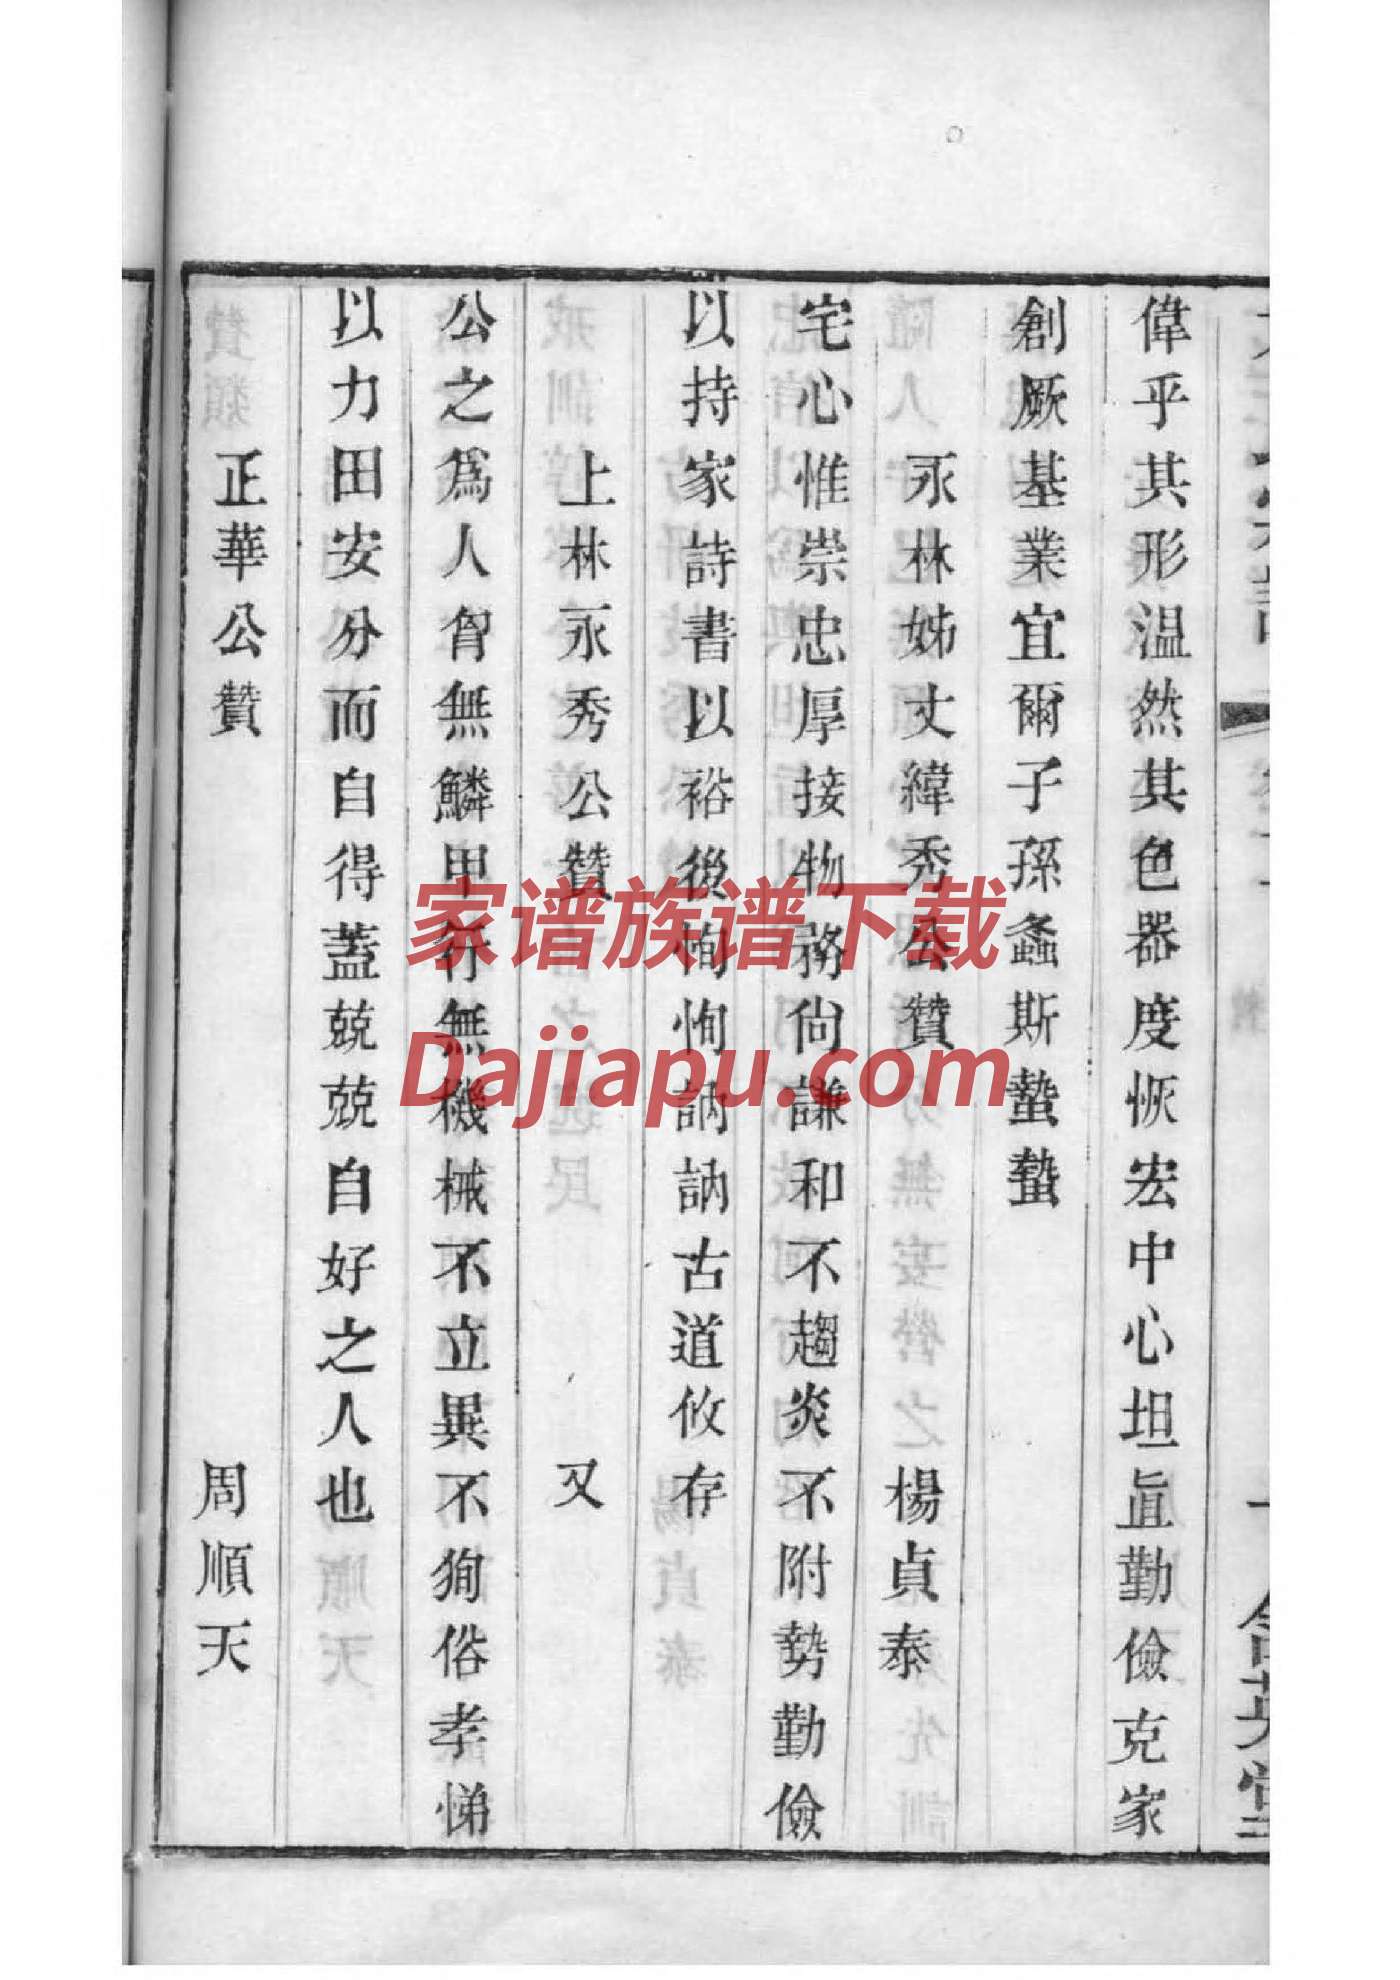 偉乎其形温然其色器度恢宏中心坦眞勤儉克家
創厥基業宜爾子孫螽斯蟄蟄
永林姊丈緯秀公贊 楊貞泰
宅心惟崇忠厚接物務尙謙和不趨炎不附勢勤儉
以持家詩書以裕後恂恂訥訥古道攸存
上林永秀公贊 又
公之爲人胷無鱗甲行無機械不立異不狥俗孝悌
以力田安分而自得蓋兢兢自好之人也
正華公贊 周順天
家谱族谱下载
Dajiapu.com